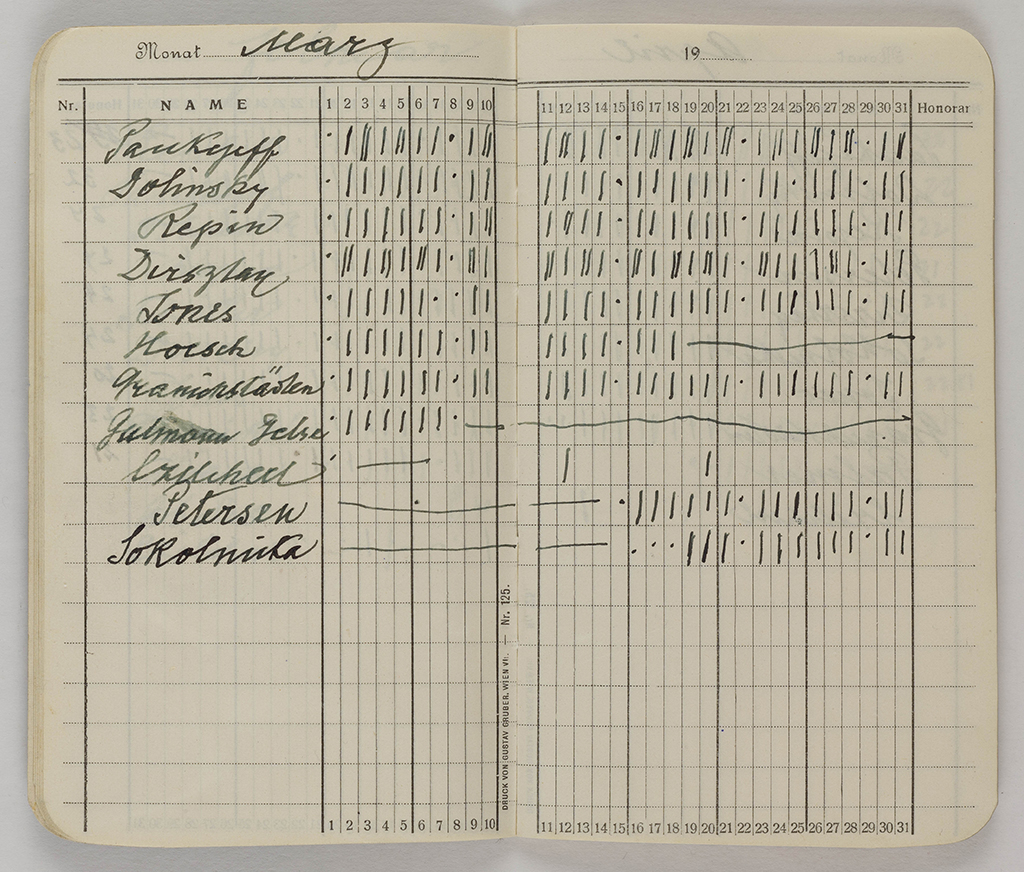 Monat März 19
Nr. NAME 1 2 3 4 5 6 7 8 9 10 11 12 13 14 15 16 17 18 19 20 21 22 23 24 25 26 27 28 29 30 31 Honorar
Pankejeff
Dolinsky
Repin
Dirsztay
Jones
Hoesch
Granichstädten
Gutmann Jelse
Petersen
Sokolnicka
1 2 3 4 5 6 7 8 9 10 11 12 13 14 15 16 17 18 19 20 21 22 23 24 25 26 27 28 29 30 31
DRUCK VON GUSTAV GRUBER, WIEN VII. — Nr. 125.